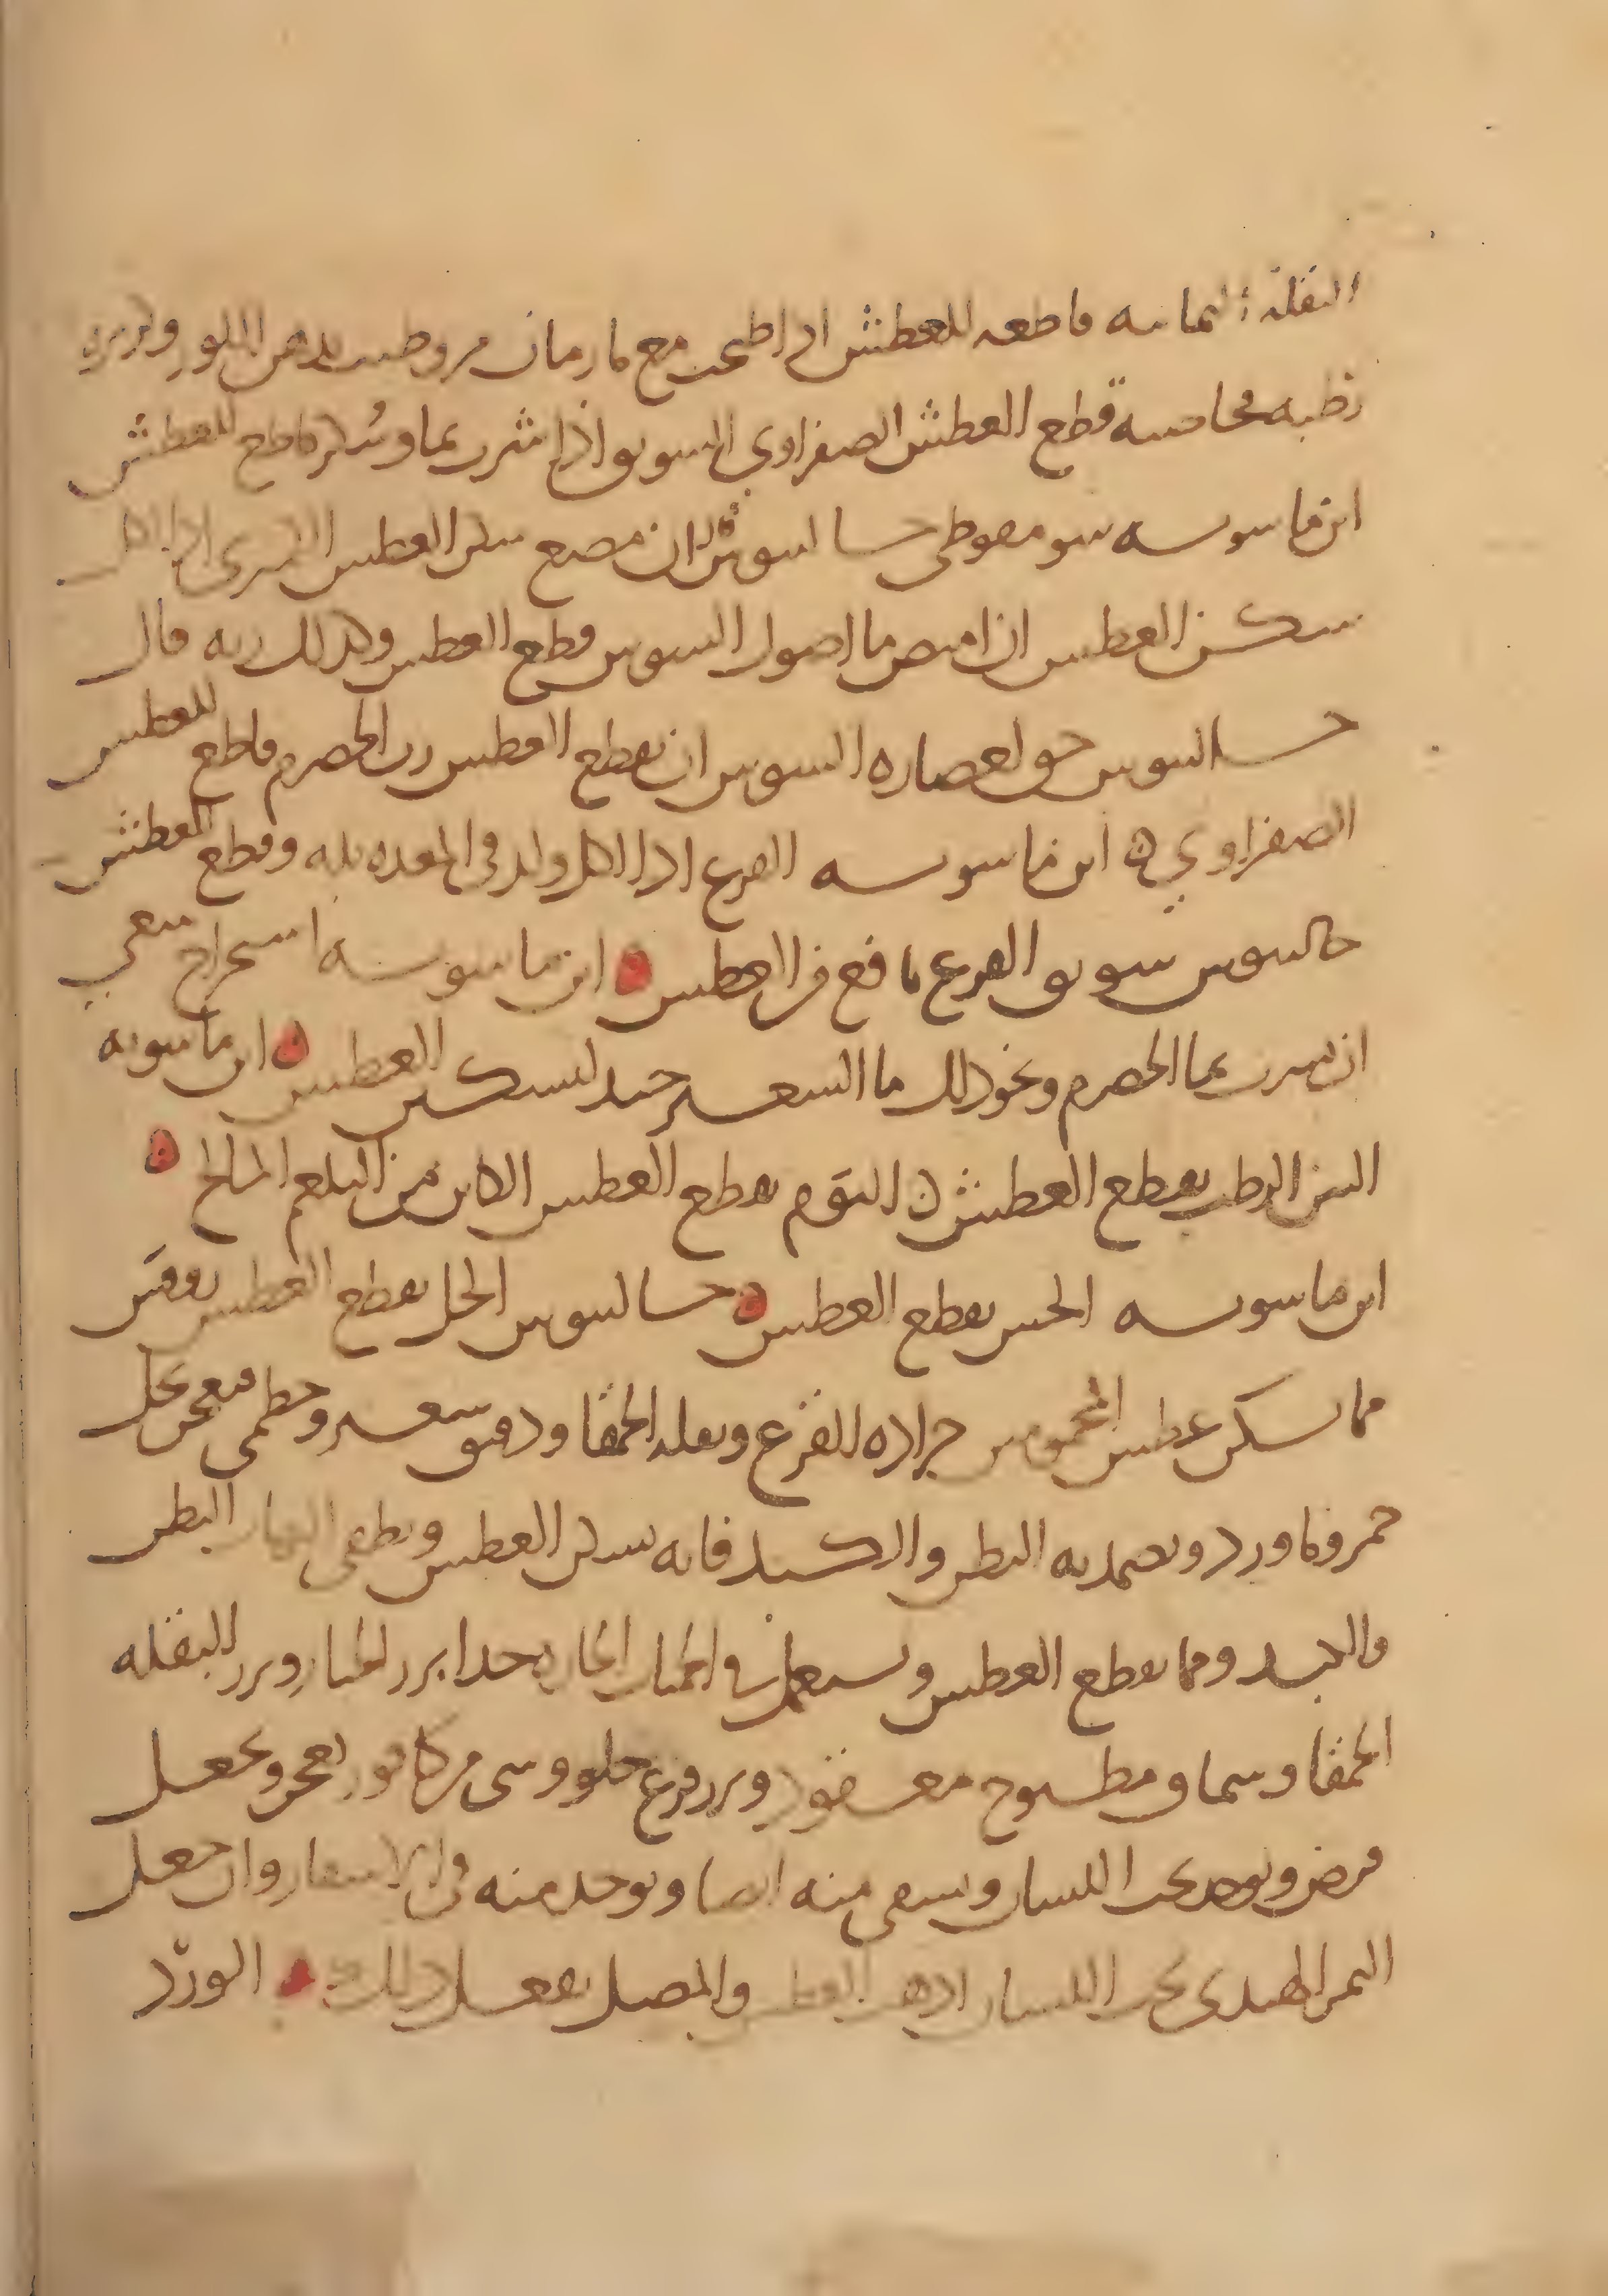 البقلة اليمانيه قاطعه للعطش اذا طبخت مع ما رمان مز وطيبت بدهن اللوز وكزبره
رطبه محاصيه قطع العطش الصفراوي السويق اذا شرب بما وسكر قاطع للعطش
ابن ماسويه سومقوطي جالسوش ان مضغ سكن العطش الكمثرى اذا اكل
سكن العطش ان امتص ما اصول السوس قطع العطش وكذلك ربه قال
جالسوس حق لعصاره السوس ان يقطع العطش رب الحصرم قاطع للعطش
الصفراوي ه ابن ماسويه القرع اذا اكل ولد في المعده بله وقطع العطش
جالسوس سويق القرع نافع من العطش ه ابن ماسويه استخراج ينبغي
ان يشرب بما الحصرم ونحو ذلك ما الشعير جيد لتسكين العطش ه ابن ماسويه
التين الرطب يقطع العطش ه الثوم يقطع العطش الكاين من البلغم المالح ه
ابن ماسويه الخس يقطع العطش ه جالسوس الخل يقطع العطش روفس
مما يسكن عطش المحمومين جراده القرع وبقله الحمقا ودقيق شعير وخطمي فيعجن بخل
خمر وما ورد ويضمد به البطن والكبد فانه يسكن العطش ويطفي البطن
والكبد ومما يقطع العطش ويستعمل في الحميات الحاره جدا بزر الخيار وبزر البقله
الحمقا وسماق مطبوخ معقود وبزر قرع حلو وشي من كافور يعجن ويجعل
قرص ويوضع تحت اللسان ويسقى منه ايضا ويوخذ منه في الاسفار وان جعل
التمر الهندي تحت اللسان اذهب العطش والمصل يفعل ذلك ه الورد